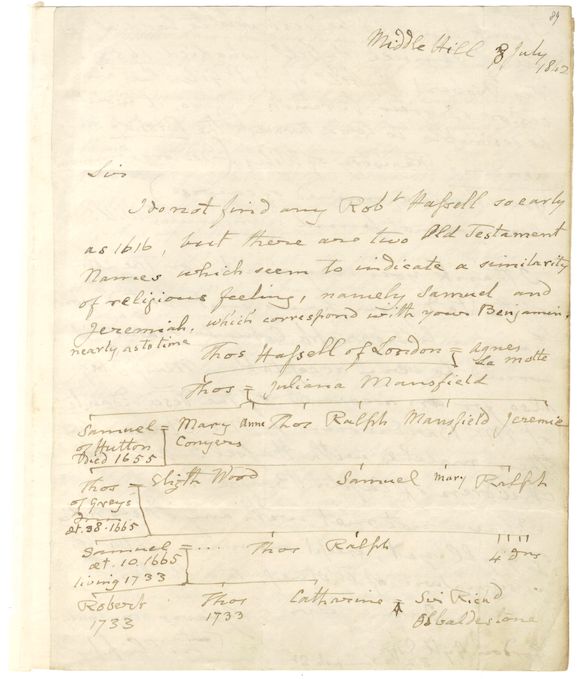 89
Middle Hill 3 July
1842
Sir
I do not find any Robt Hassell so early
as 1616, but there are two Old Testament
Names which seem to indicate a similarity
of religious feeling, namely Samuel and
Jeremiah, which correspond with your Benjamin,
nearly as to time
Thos Hassell of London = Agnes
La Motte
Thos = Juliana Mansfield
Samuel = Mary Anne Thos Ralph Mansfield Jeremie
of Hutton Conyers
Died 1655
Thos = Elizth Wood Samuel Mary Ralph
of Greys
æt. 38. 1665
Samuel = .... Thos Ralph 4 Drs
æt. 10. 1665
living 1733
Robert Thos Catharine = Sir Richd
1733 1733 Osbaldestone